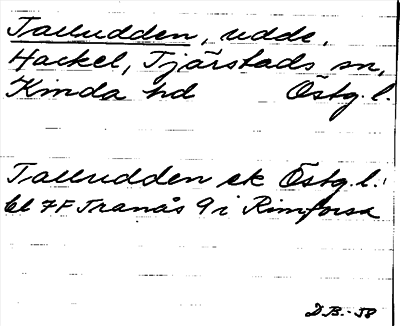 Talludden, udde,
Hackel, Tjärstads sn,
Kinda hd Östg. l.
Talludden ek Östg. l.
bl 7F Tranås 9 i Rimforsa
D.B. - 58